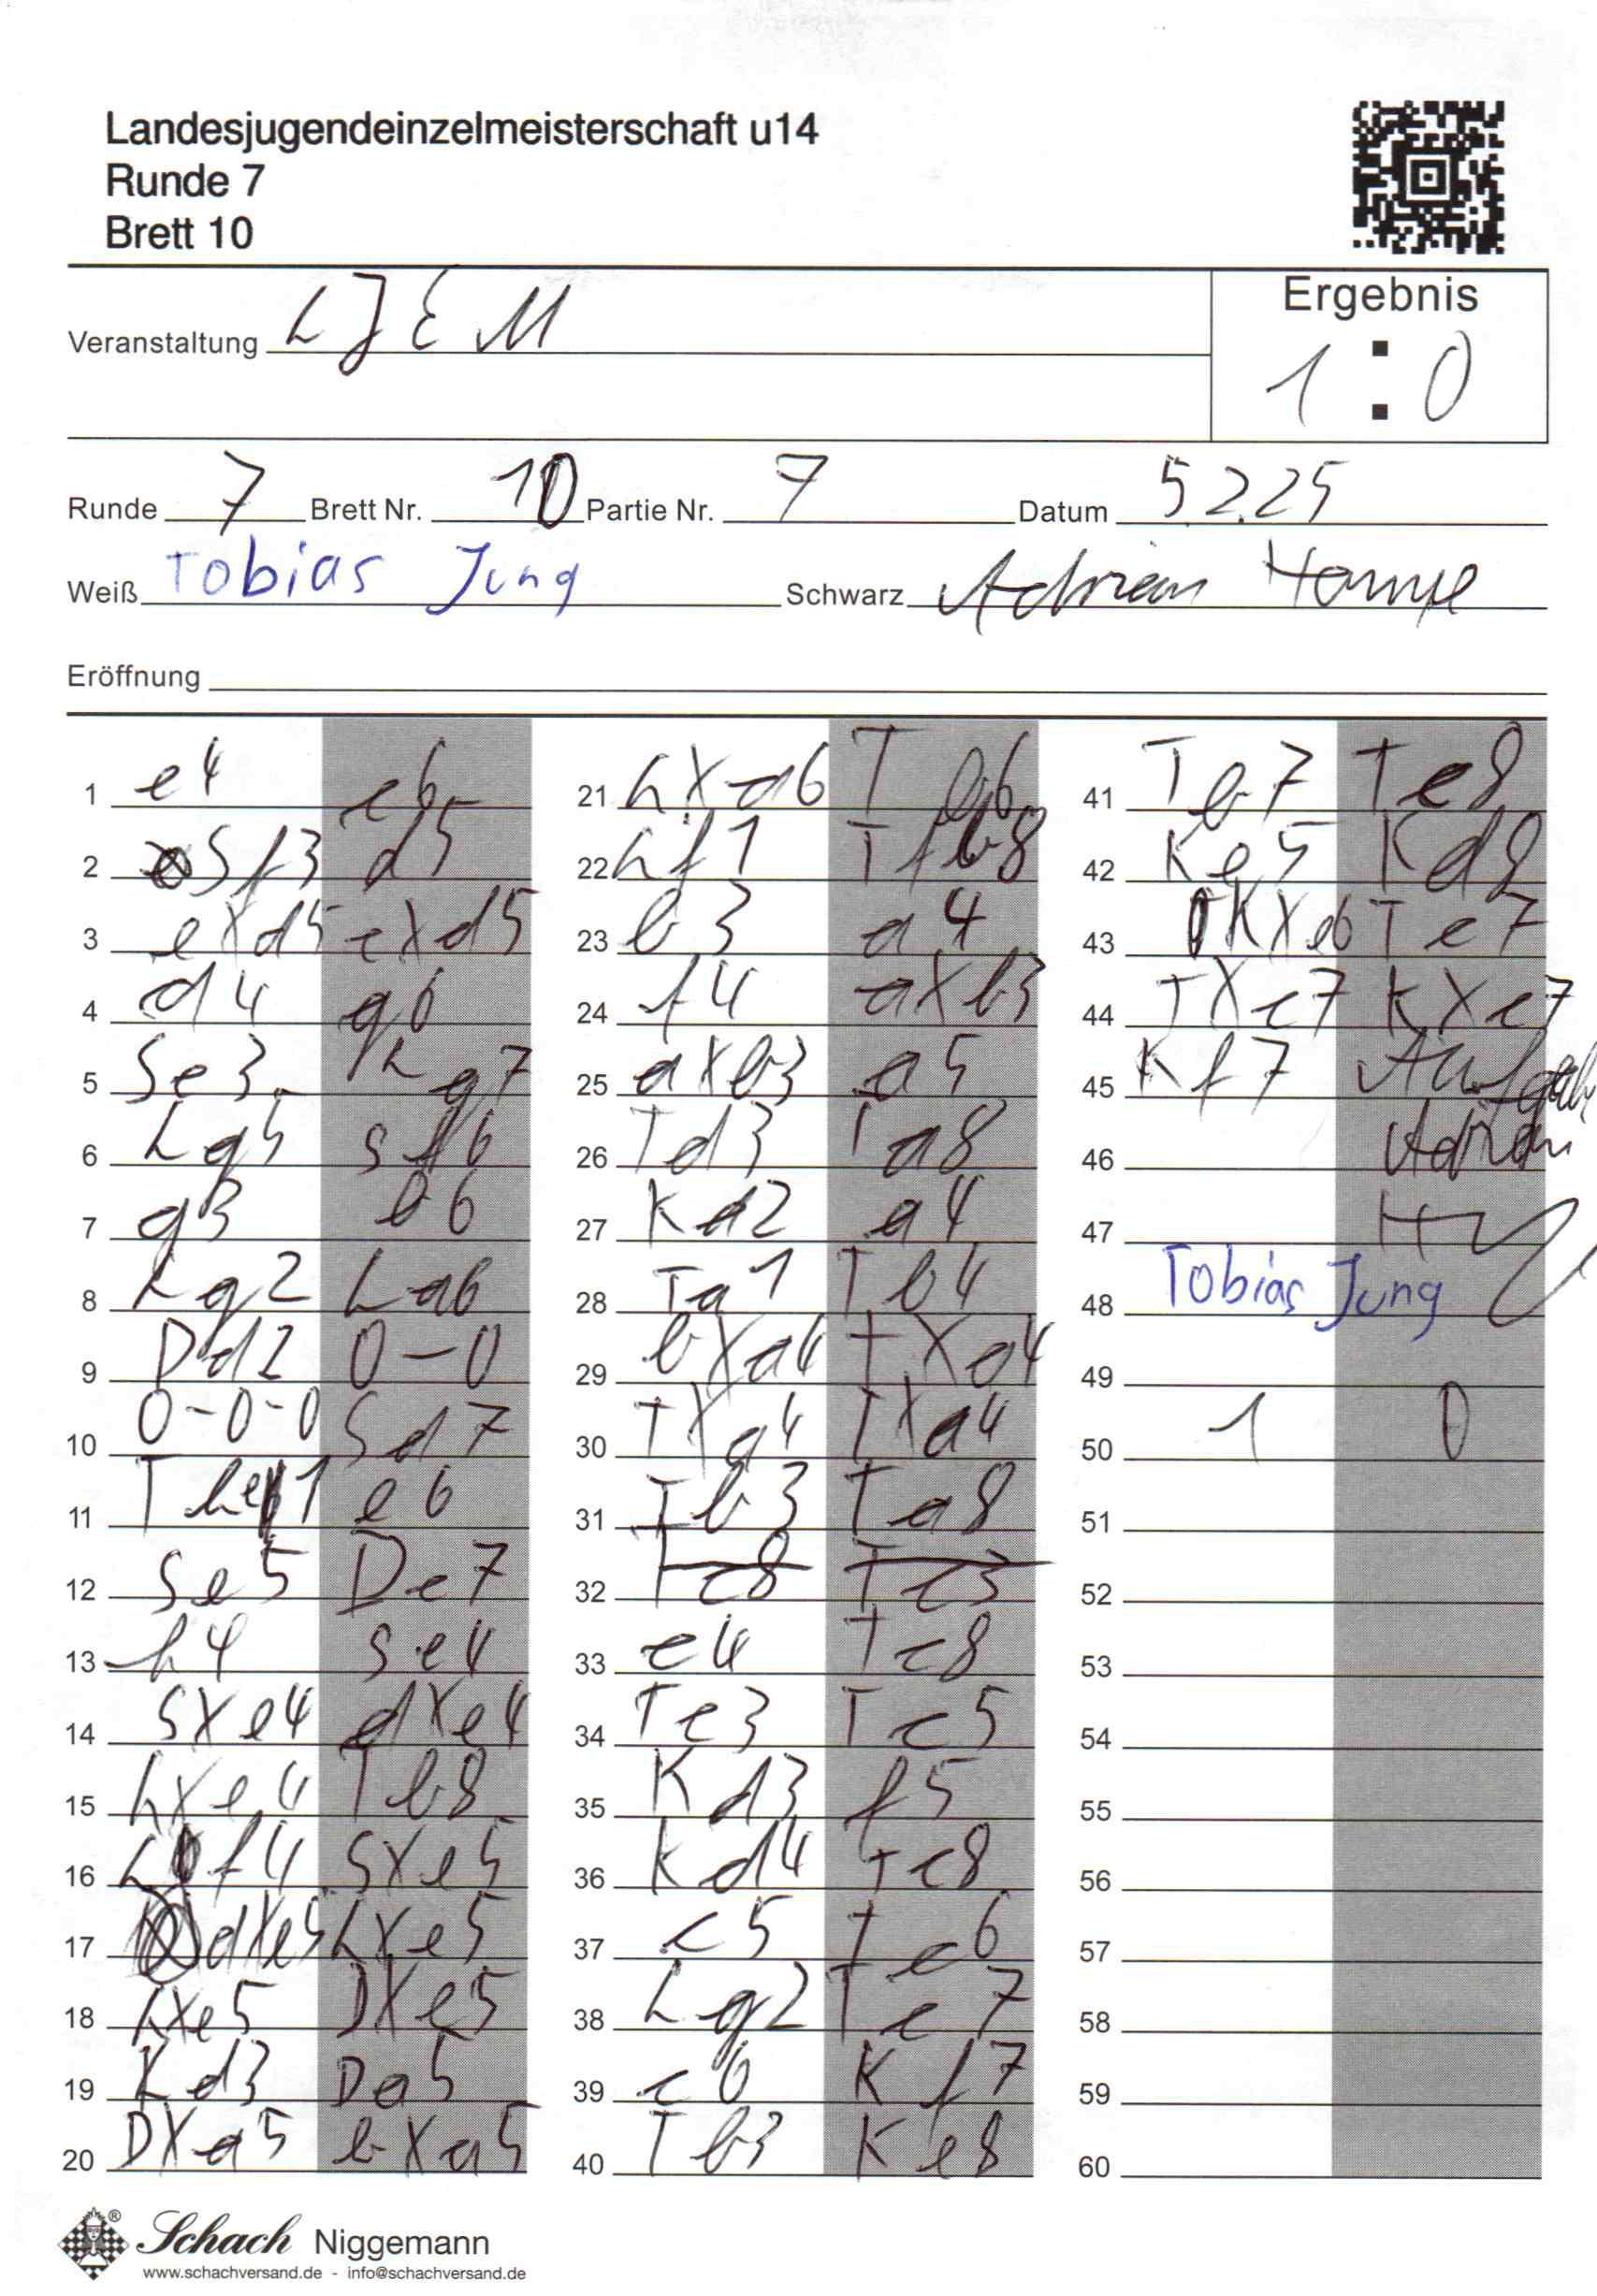 Landesjugendeinzelmeisterschaft u14
Runde 7
Brett 10
Veranstaltung LJEM
Ergebnis
1 : 0
Runde 7 Brett Nr. 10 Partie Nr. 7 Datum 5.2.25
Weiß Tobias Jung Schwarz Adrian
Eröffnung
1 e4 e6
2 Sf3 d5
3 eXd5 eXd5
4 d4 g6
5 Sc3 Lg7
6 Lg5 Sf6
7 g3 b6
8 Lg2 La6
9 Dd2 0-0
10 0-0-0 Sd7
11 The1 c6
12 Se5 Dc7
13 h4 Se4
14 SXe4 dXe4
15 LXe4 Tb8
16 Lf4 SXe5
17 dXe5 LXe5
18 LXe5 DXe5
19 Ld3 Da5
20 DXa5 bXa5
21 LXa6 Tb6
22 Lf1 Tfb8
23 b3 a4
24 f4 aXb3
25 aXb3 a5
26 Td3 Ta8
27 Kd2 a4
28 Ta1 Tb4
29 bXa4 TXa4
30 TXa4 TXa4
31 Tb3 Ta8
32 Tc8 Tc3
33 c4 Tc8
34 Tc3 Tc5
35 Kd3 f5
36 Kd4 Tc8
37 c5 Tc6
38 Lg2 Tc7
39 c6 Kf7
40 Tb3 Ke8
41 Tb7 Tc8
42 Ke5 Kd8
43 KXe6 Te7
44 TXc7 KXc7
45 Kf7 Aufgabe
46 Adrian
47
48 Tobias Jung
49
50 1 0
51
52
53
54
55
56
57
58
59
60
Schach Niggemann
www.schachversand.de - info@schachversand.de